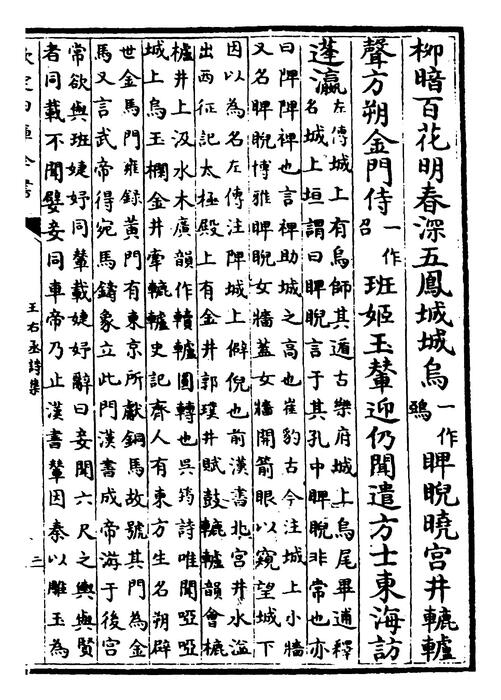 柳暗百花明春深五鳳城城烏一作鵶睥睨曉宮井轆轤
聲方朔金門侍一作召班姬玉輦迎仍聞遣方士東海訪
蓬瀛左傳城上有烏師其遁古樂府城上烏尾畢逋釋
名城上垣謂曰睥睨言于其孔中睥睨非常也亦
曰陴陴裨也言裨助城之高也崔豹古今注城上小牆
又名睥睨博雅睥睨女牆蓋女牆開箭眼以窺望城下
因以為名左傳注陴城上僻倪也前漢書北宮井水溢
出西征記太極殿上有金井郭璞井賦鼓轆轤韻會樚
櫨井上汲水木廣韻作轒轤圓轉也吳筠詩唯聞啞啞
城上烏玉欄金井牽轆轤史記齊人有東方生名朔辟
世金馬門雍録黄門有東京所獻銅馬故號其門為金
馬又言武帝得宛馬鑄象立此門漢書成帝游于後宮
常欲與班婕妤同輦載婕妤辭曰妾聞六尺之輿與賢
者同載不聞嬖妾同車帝乃止漢書輦因秦以雕玉為
王右丞詩集